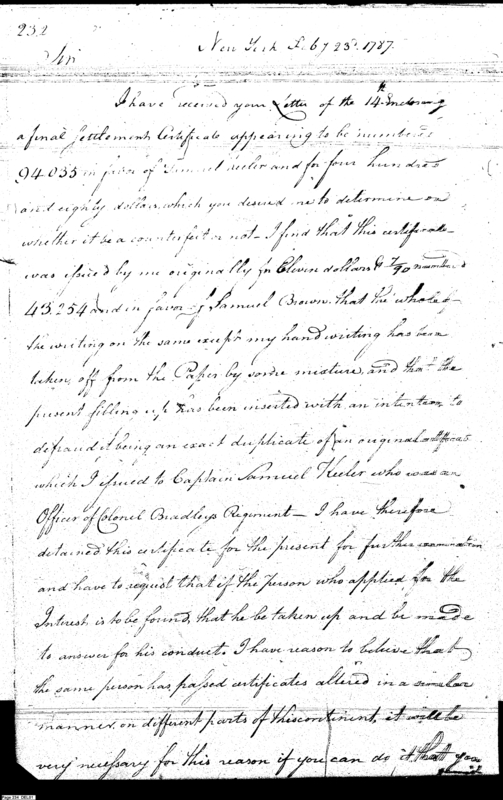 232
New York Feby 23d. 1787.
Sir
I have received your Letter of the 14th Enclosing
a final Settlement Certificate appearing to be number
94.035 in favor of Samuel Keeler and for four hundred
and eighty dollars, which you desired me to determine on
whether it be a counterfeit or not - I find that this certificate
was issued by me originally for Eleven dollars & 7/90 numbered
43.254 and in favor of Samuel Brown. that the whole of
the writing on the same except my hand writing has been
taken off from the Paper by some mixture, and that the
present filling up has been inserted with an intention to
defraud it being an exact duplicate of an original certificate
which I issued to Captain Samuel Keeler who was an
Officer of Colonel Bradleys Regiment - I have therefore
detained this certificate for the present for further examination
and have to request that if the person who applied for the
Interest is to be found, that he be taken up and be made
to answer for his conduct. I have reason to believe that
the same person has passed certificates altered in a similar
manner, on different parts of this continent, it will be
very necessary for this reason if you can do it that you